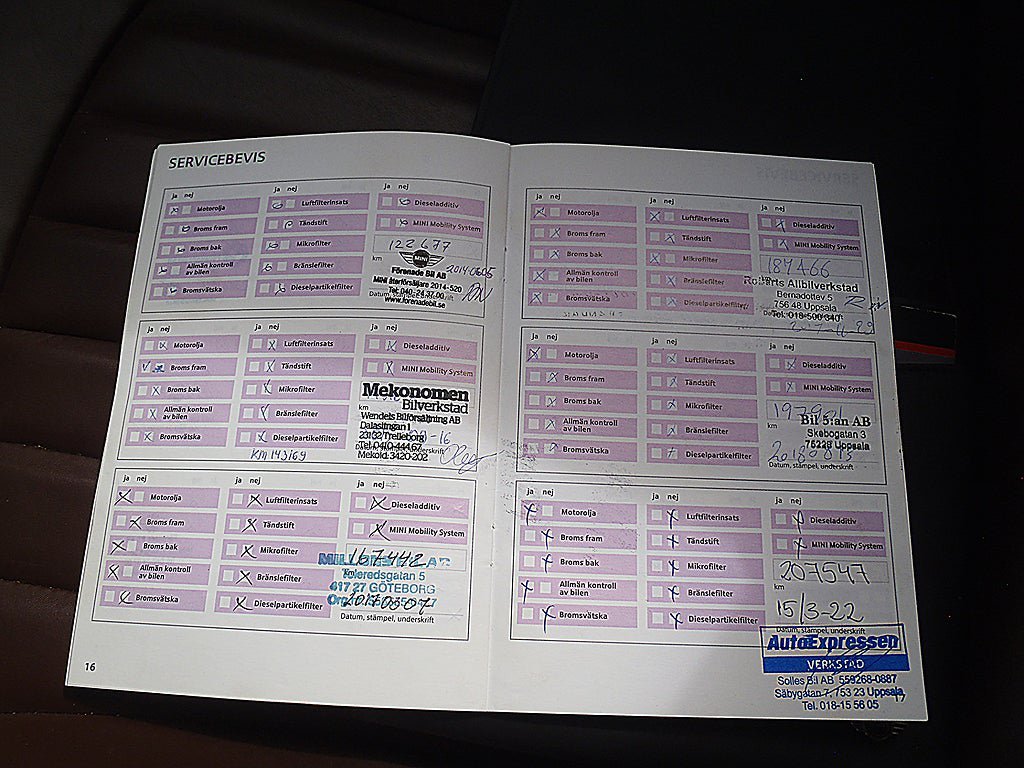 SERVICEBEVIS
ja nej
ja nej
ja nej
Motorolja
Broms fram
Broms bak
Allmän kontroll
av bilen
Bromsvätska
Luftfilterinsats
Tändstift
Mikrofilter
Bränslefilter
Dieselpartikelfilter
Dieseladditiv
MINI Mobility System
122677
km
MINI
20140605
Förenade Bil AB
MINI återförsäljare 2014-520
Tel. 040-24 37 00
Datum, stämpel, underskrift
www.forenadebil.se
ja nej
ja nej
ja nej
Motorolja
Broms fram
Broms bak
Allmän kontroll
av bilen
Bromsvätska
Luftfilterinsats
Tändstift
Mikrofilter
Bränslefilter
Dieselpartikelfilter
KM 143169
Dieseladditiv
MINI Mobility System
Mekonomen
km
Bilverkstad
Wendels Bilförsäljning AB
Dalaslingan 1
23132 Trelleborg
-16
Tel. 0410-444 57
Mekoid: 3420-202
ja nej
ja nej
ja nej
Motorolja
Broms fram
Broms bak
Allmän kontroll
av bilen
Bromsvätska
Luftfilterinsats
Tändstift
Mikrofilter
Bränslefilter
Dieselpartikelfilter
Dieseladditiv
MINI Mobility System
167442
Toleredsgatan 5
417 27 GÖTEBORG
20170307
Datum, stämpel, underskrift
16
ja nej
ja nej
ja nej
Motorolja
Broms fram
Broms bak
Allmän kontroll
av bilen
Bromsvätska
Luftfilterinsats
Tändstift
Mikrofilter
Bränslefilter
Dieselpartikelfilter
Dieseladditiv
MINI Mobility System
187466
km
Roberts Allbilverkstad
Bernadottev 5
756 48 Uppsala
Tel: 018-500 340
ja nej
ja nej
ja nej
Motorolja
Broms fram
Broms bak
Allmän kontroll
av bilen
Bromsvätska
Luftfilterinsats
Tändstift
Mikrofilter
Bränslefilter
Dieselpartikelfilter
Dieseladditiv
MINI Mobility System
km
Bil 5:an AB
Skebogatan 3
75228 Uppsala
20180815
Datum, stämpel, underskrift
ja nej
ja nej
ja nej
Motorolja
Broms fram
Broms bak
Allmän kontroll
av bilen
Bromsvätska
Luftfilterinsats
Tändstift
Mikrofilter
Bränslefilter
Dieselpartikelfilter
Dieseladditiv
MINI Mobility System
207547
km
15/3-22
Datum, stämpel, underskrift
AutoExpressen
VERKSTAD
Solles Bil AB 559268-0887
Säbygatan 7, 753 23 Uppsala
Tel. 018-15 56 05
17